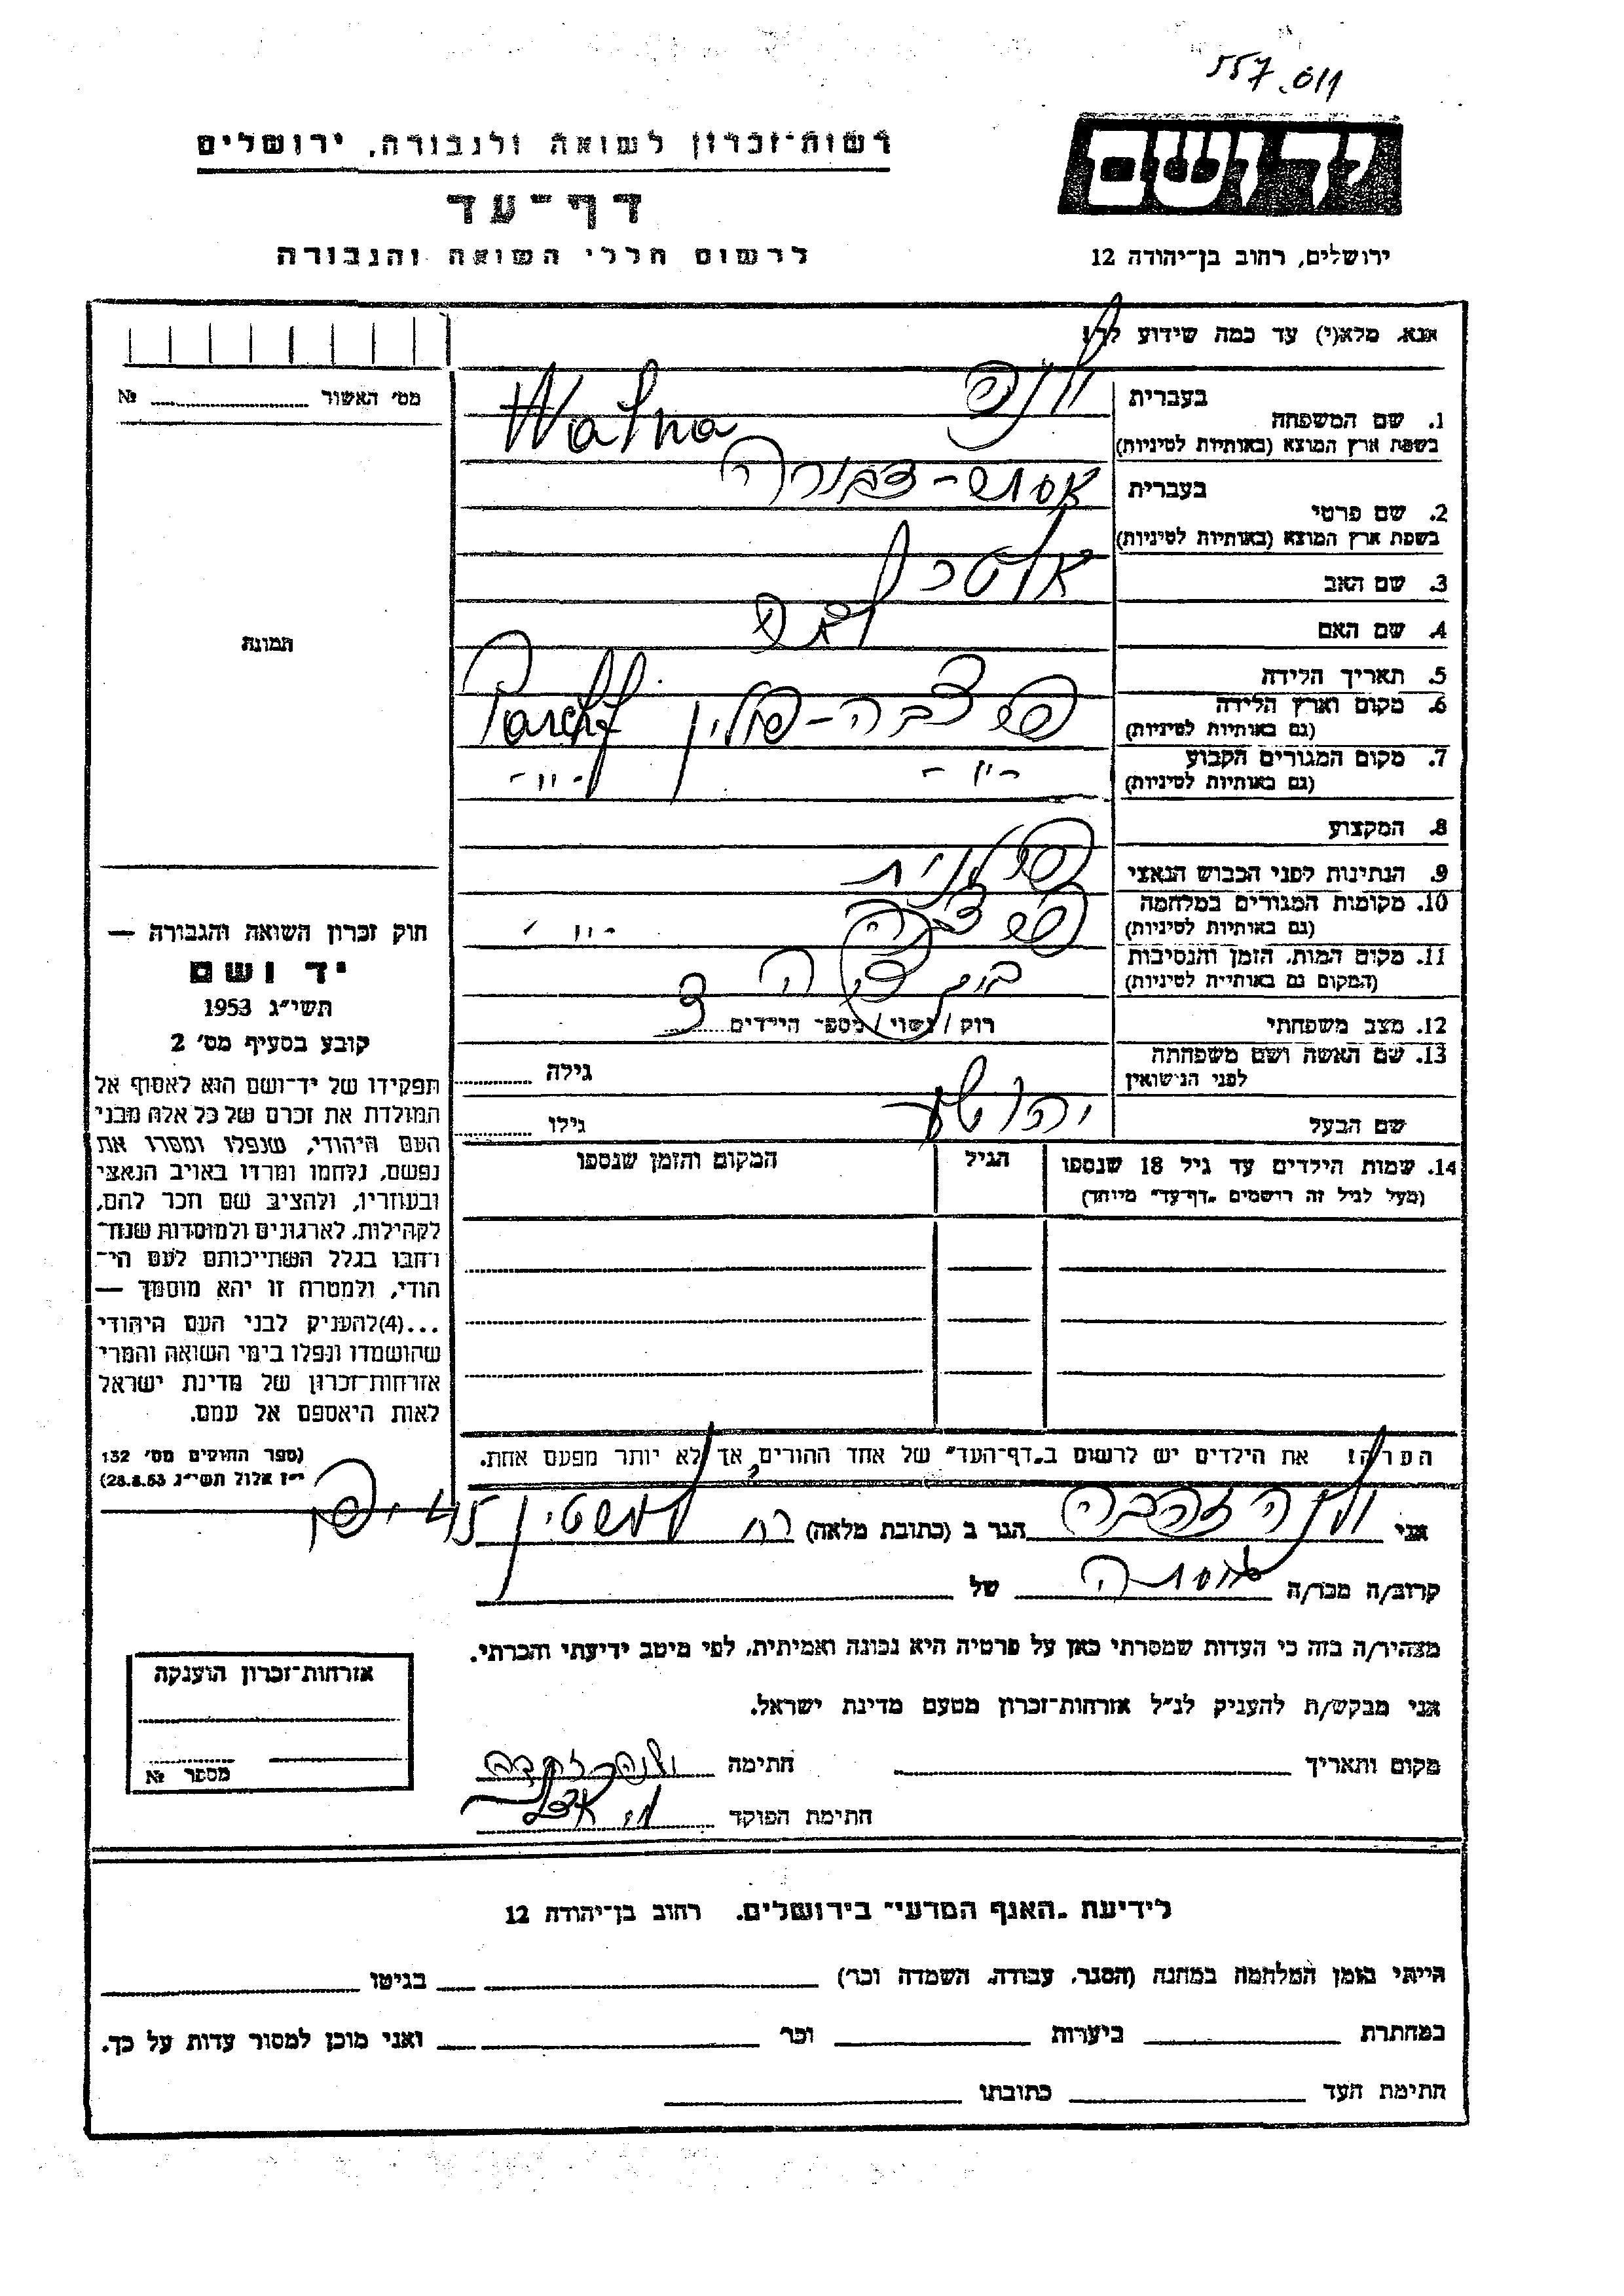 557.011
רשות־זכרון לשואה ולגבורה, ירושלים
דף־עד
לרשום חללי השואה והגבורה
יד ושם
ירושלים, רחוב בן־יהודה 12
אנא, מלא(י) עד כמה שידוע לך!
מס׳ האשור № 
1. שם המשפחה
בעברית
בשפת ארץ המוצא (באותיות לטיניות)
Walna
2. שם פרטי
בעברית
אסתר-דבורה
בשפת ארץ המוצא (באותיות לטיניות)
3. שם האב
אלטר
4. שם האם
לאה
5. תאריך הלידה
6. מקום וארץ הלידה
(גם באותיות לטיניות)
פולין
7. מקום המגורים הקבוע
(גם באותיות לטיניות)
-"- -"-
8. המקצוע
9. הנתינות לפני הכבוש הנאצי
פולנית
10. מקומות המגורים במלחמה
(גם באותיות לטיניות)
-"-
11. מקום המות, הזמן והנסיבות
(המקום גם באותיות לטיניות)
12. מצב משפחתי
רוק / נשוי / מספר הילדים
13. שם האשה ושם משפחתה
לפני הנישואין
גילה
שם הבעל
יהושע
גילו
14. שמות הילדים עד גיל 18 שנספו
(מעל לגיל זה רושמים "דף־עד" מיוחד)
הגיל
המקום והזמן שנספו
הערה! את הילדים יש לרשום ב"דף־העד" של אחד ההורים, אך לא יותר מפעם אחת.
תמונה
חוק זכרון השואה והגבורה —
יד ושם
תשי״ג 1953
קובע בסעיף מס׳ 2
תפקידו של יד־ושם הוא לאסוף אל
המולדת את זכרם של כל אלה מבני
העם היהודי, שנפלו ומסרו את
נפשם, נלחמו ומרדו באויב הנאצי
ובעוזריו, ולהציב שם וזכר להם,
לקהילות, לארגונים ולמוסדות שנח־
רחבו בגלל השתייכותם לעם הי־
הודי, ולמטרה זו יהא מוסמך —
...(4)להעניק לבני העם היהודי
שהושמדו ונפלו בימי השואה והמרי
אזרחות־זכרון של מדינת ישראל
לאות היאספם אל עמם.
(ספר החוקים מס׳ 132
י״ז אלול תשי״ג 28.8.53)
אני ולנה זהבה הגר ב (כתובת מלאה) רח 45 יפו
קרוב/ה מכר/ה של
מצהיר/ה בזה כי העדות שמסרתי כאן על פרטיה היא נכונה ואמיתית, לפי מיטב ידיעתי והכרתי.
אני מבקש/ת להעניק לנ״ל אזרחות־זכרון מטעם מדינת ישראל.
מקום ותאריך חתימה ולנה זהבה
חתימת הפוקד
אזרחות־זכרון הוענקה
מספר №
לידיעת "האגף המדעי" בירושלים, רחוב בן־יהודה 12
הייתי בזמן המלחמה במחנה (הסגר, עבודה, השמדה וכר) בגיטו
במחתרת ביערות וכר ואני מוכן למסור עדות על כך.
חתימת העד כתובתו